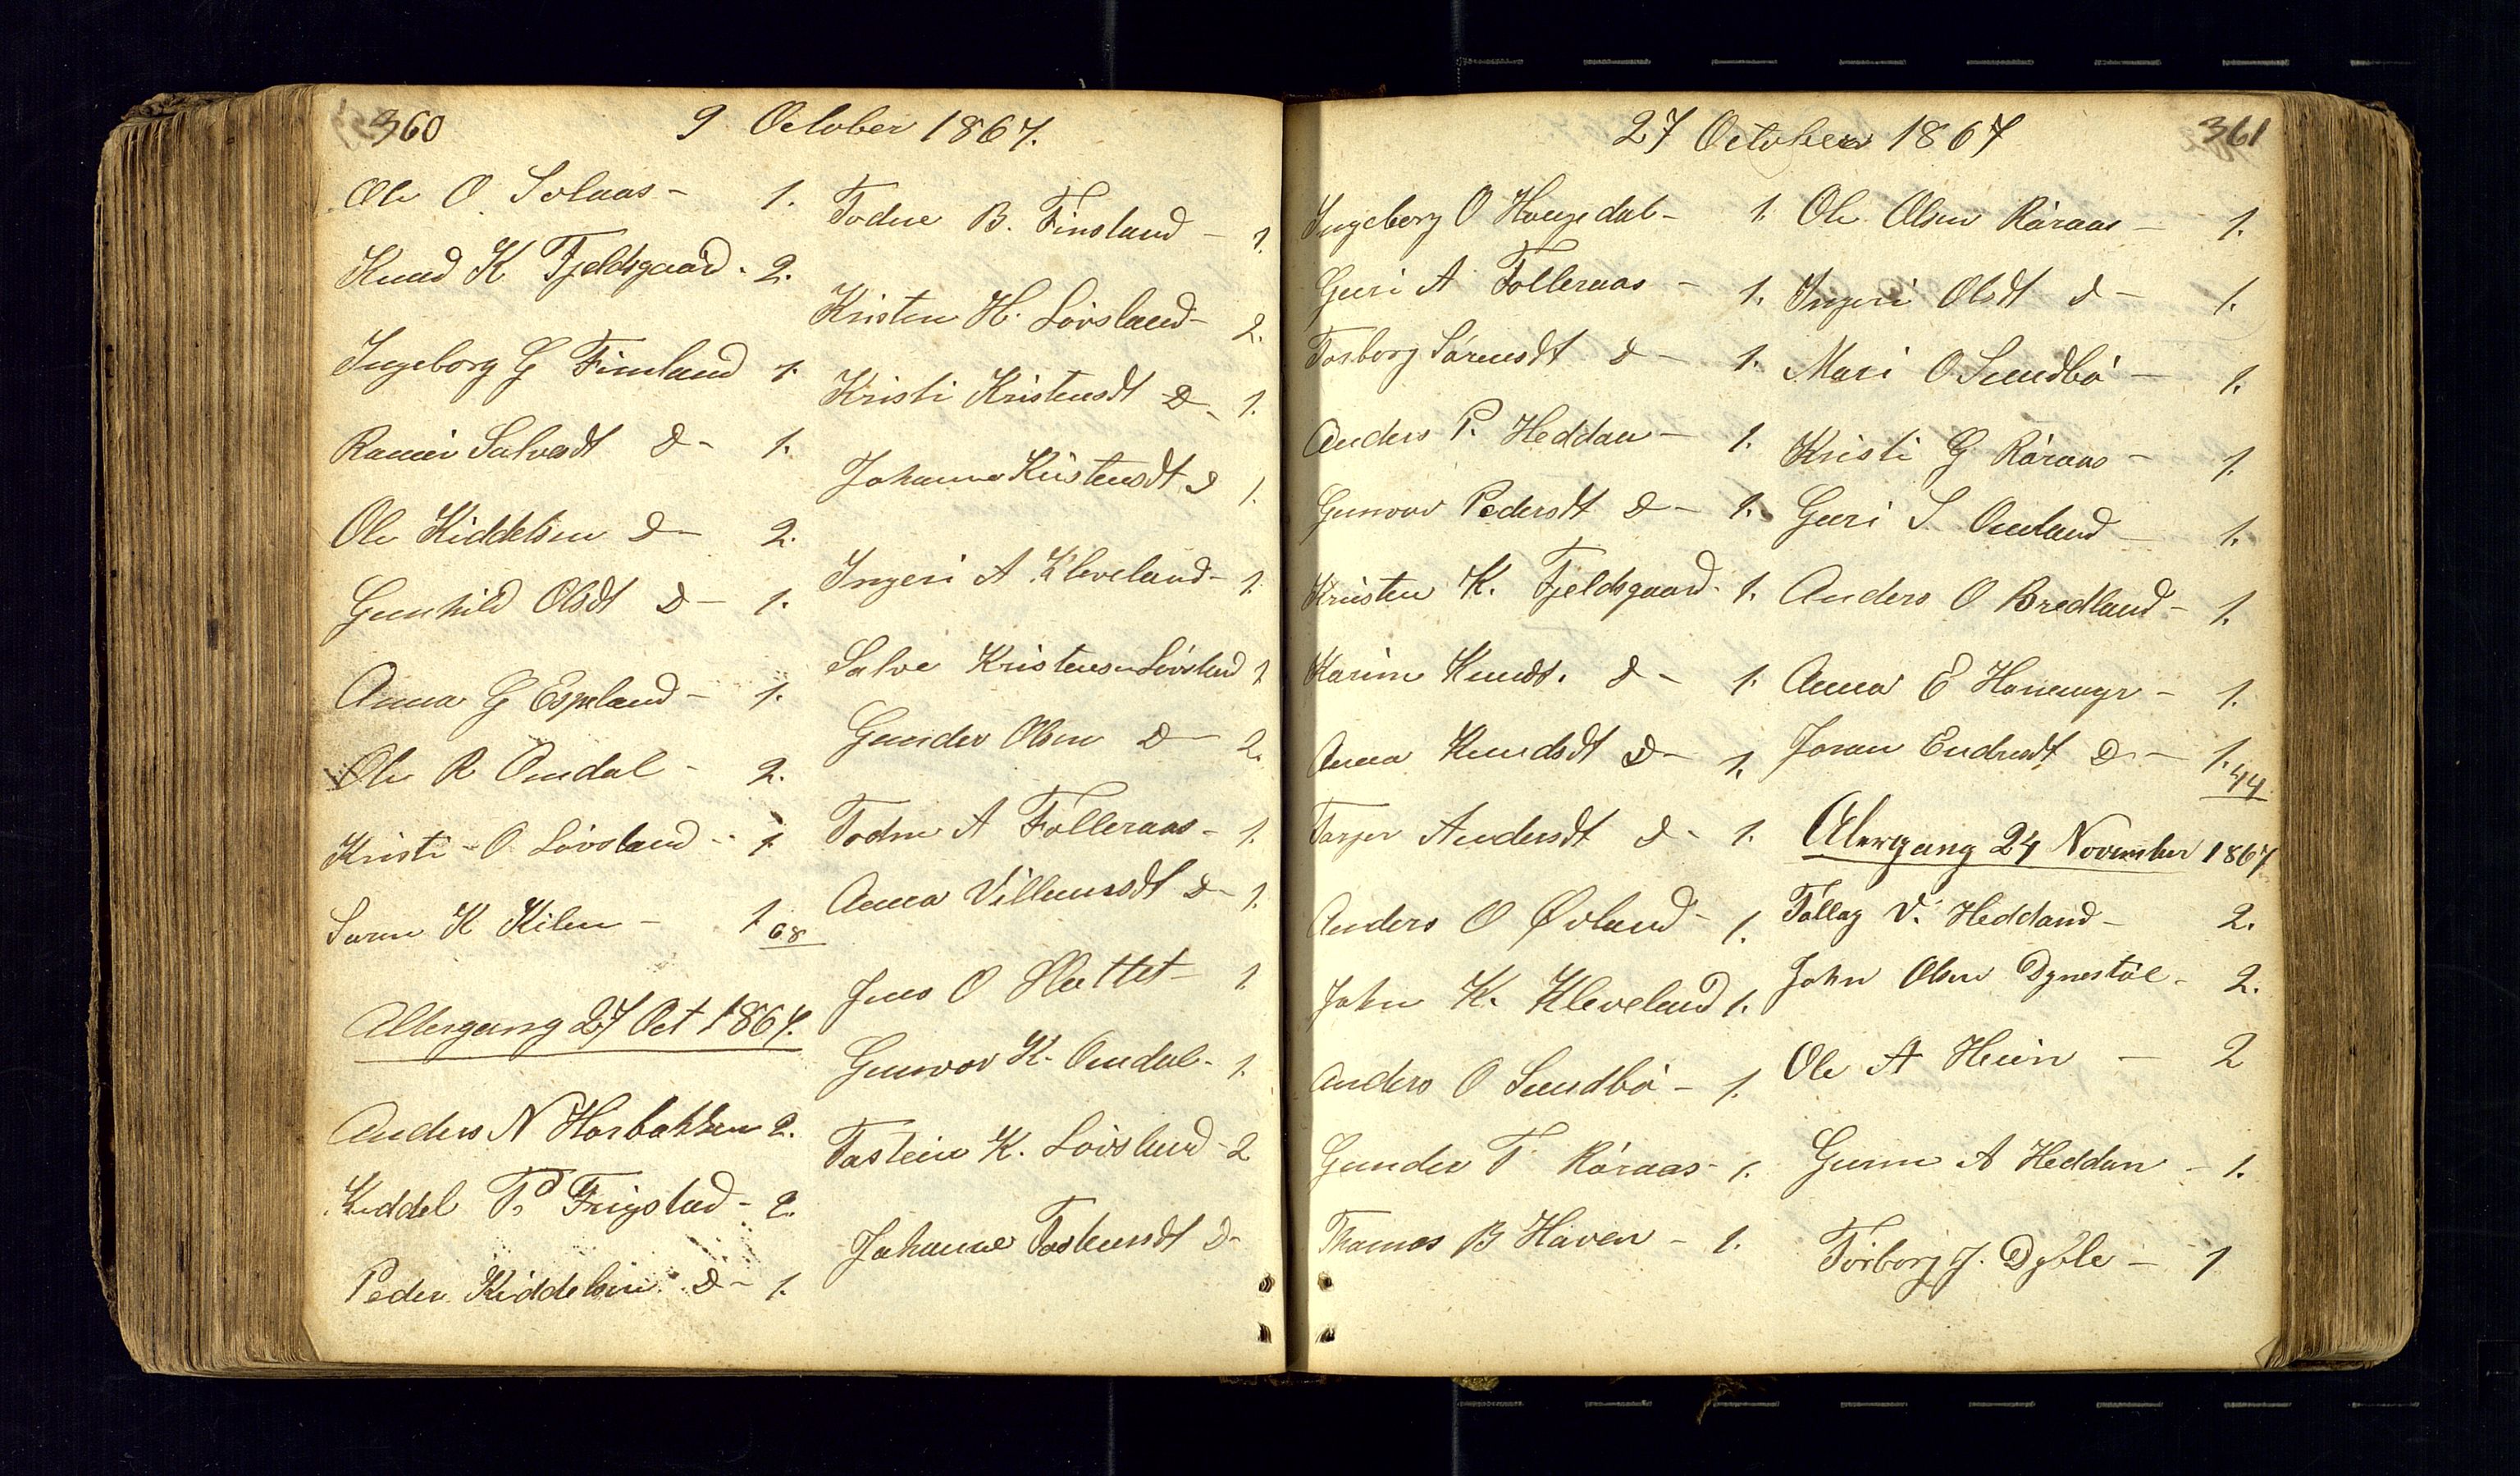 360
9 October 1867.
Ole O. Solaas - 1.
Knud K Fjeldsgaard - 2.
Ingeborg G Finnland 1.
Salvesdt D - 1.
Ole Kiddelsen D - 2.
Gunhild Olsdt D - 1.
Anna G Espeland - 1.
Ole R Omdal - 2.
Kristi O Lövsland - 1.
Soren K Kilen - 1
68
Altergang 27 Oct 1867.
Anders N Horbakken 2.
Kiddel Frigstad - 2.
Peder Kiddelsen D - 1.
Todne B. Finsland - 1.
Kristen H. Lövsland - 2.
Kristi Kristensdt D - 1.
Johanne Kristensdt D 1.
Ingeri A Kleveland - 1.
Salve Kristensen Lövsland 1
Gunder Olsen D - 2.
Todne A Folleraas - 1.
Anna Villumsdt D - 1.
Jens O 1.
Gunvor K. Omdal - 1.
Tostein K. Lövsland - 2
Johanne Tostensdt D -
27 October 1867
361
Ingeborg O Haugedal - 1.
Guri A Folleraas - 1.
Torborg Sörensdt D - 1.
Anders P. Heddan - 1.
Gunvor Pedersdt D - 1.
Kristen K. Fjeldsgaard - 1.
Karine Knudt. D - 1.
Anna Knudsdt D - 1.
Torjer Andersdt D - 1.
Anders O Øvland - 1.
John K. Kleveland 1.
Anders O Sundbö - 1.
Gunder T Röraas - 1.
Thomas B Haven - 1.
Ole Olsen Röraas - 1.
Ingeri Olsdt D - 1.
Mari O Sundbö - 1.
Kristi G Röraas - 1.
Guri S Omland - 1.
Anders O Bredland - 1.
Anna E Honemyr - 1.
Joran Endresdt D - 1.
44
Altergang 24 November 1867
Tallag V. Heddand - 2.
John Olsen Dynestöl - 2.
Ole A - 2
Gunne A Heddan - 1.
Torborg J. Dyble - 1